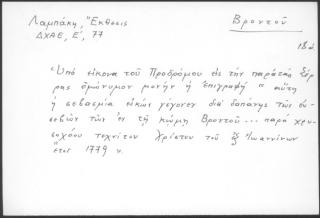 Λαμπάκη, "Έκθεσις
ΔΧΑΕ, Ε', 77
Βροντοῦ
"Ὑπό εἰκόνα τοῦ Προδρόμου εἰς τήν παρά τάς Σέρ
ρας ὁμώνυμον μονήν ἡ ἐπιγραφή " αὕτη
ἡ σεβασμία εἰκών γέγονεν διά δαπάνης τῶν εὐ
σεβῶν τῶν ἐν τῇ κώμῃ Βροντοῦ... παρά χρυ
σοχόου τεχνίτου Χρίστου τοῦ ἐξ Ἰωαννίνων
ἔτος 1779 ν.